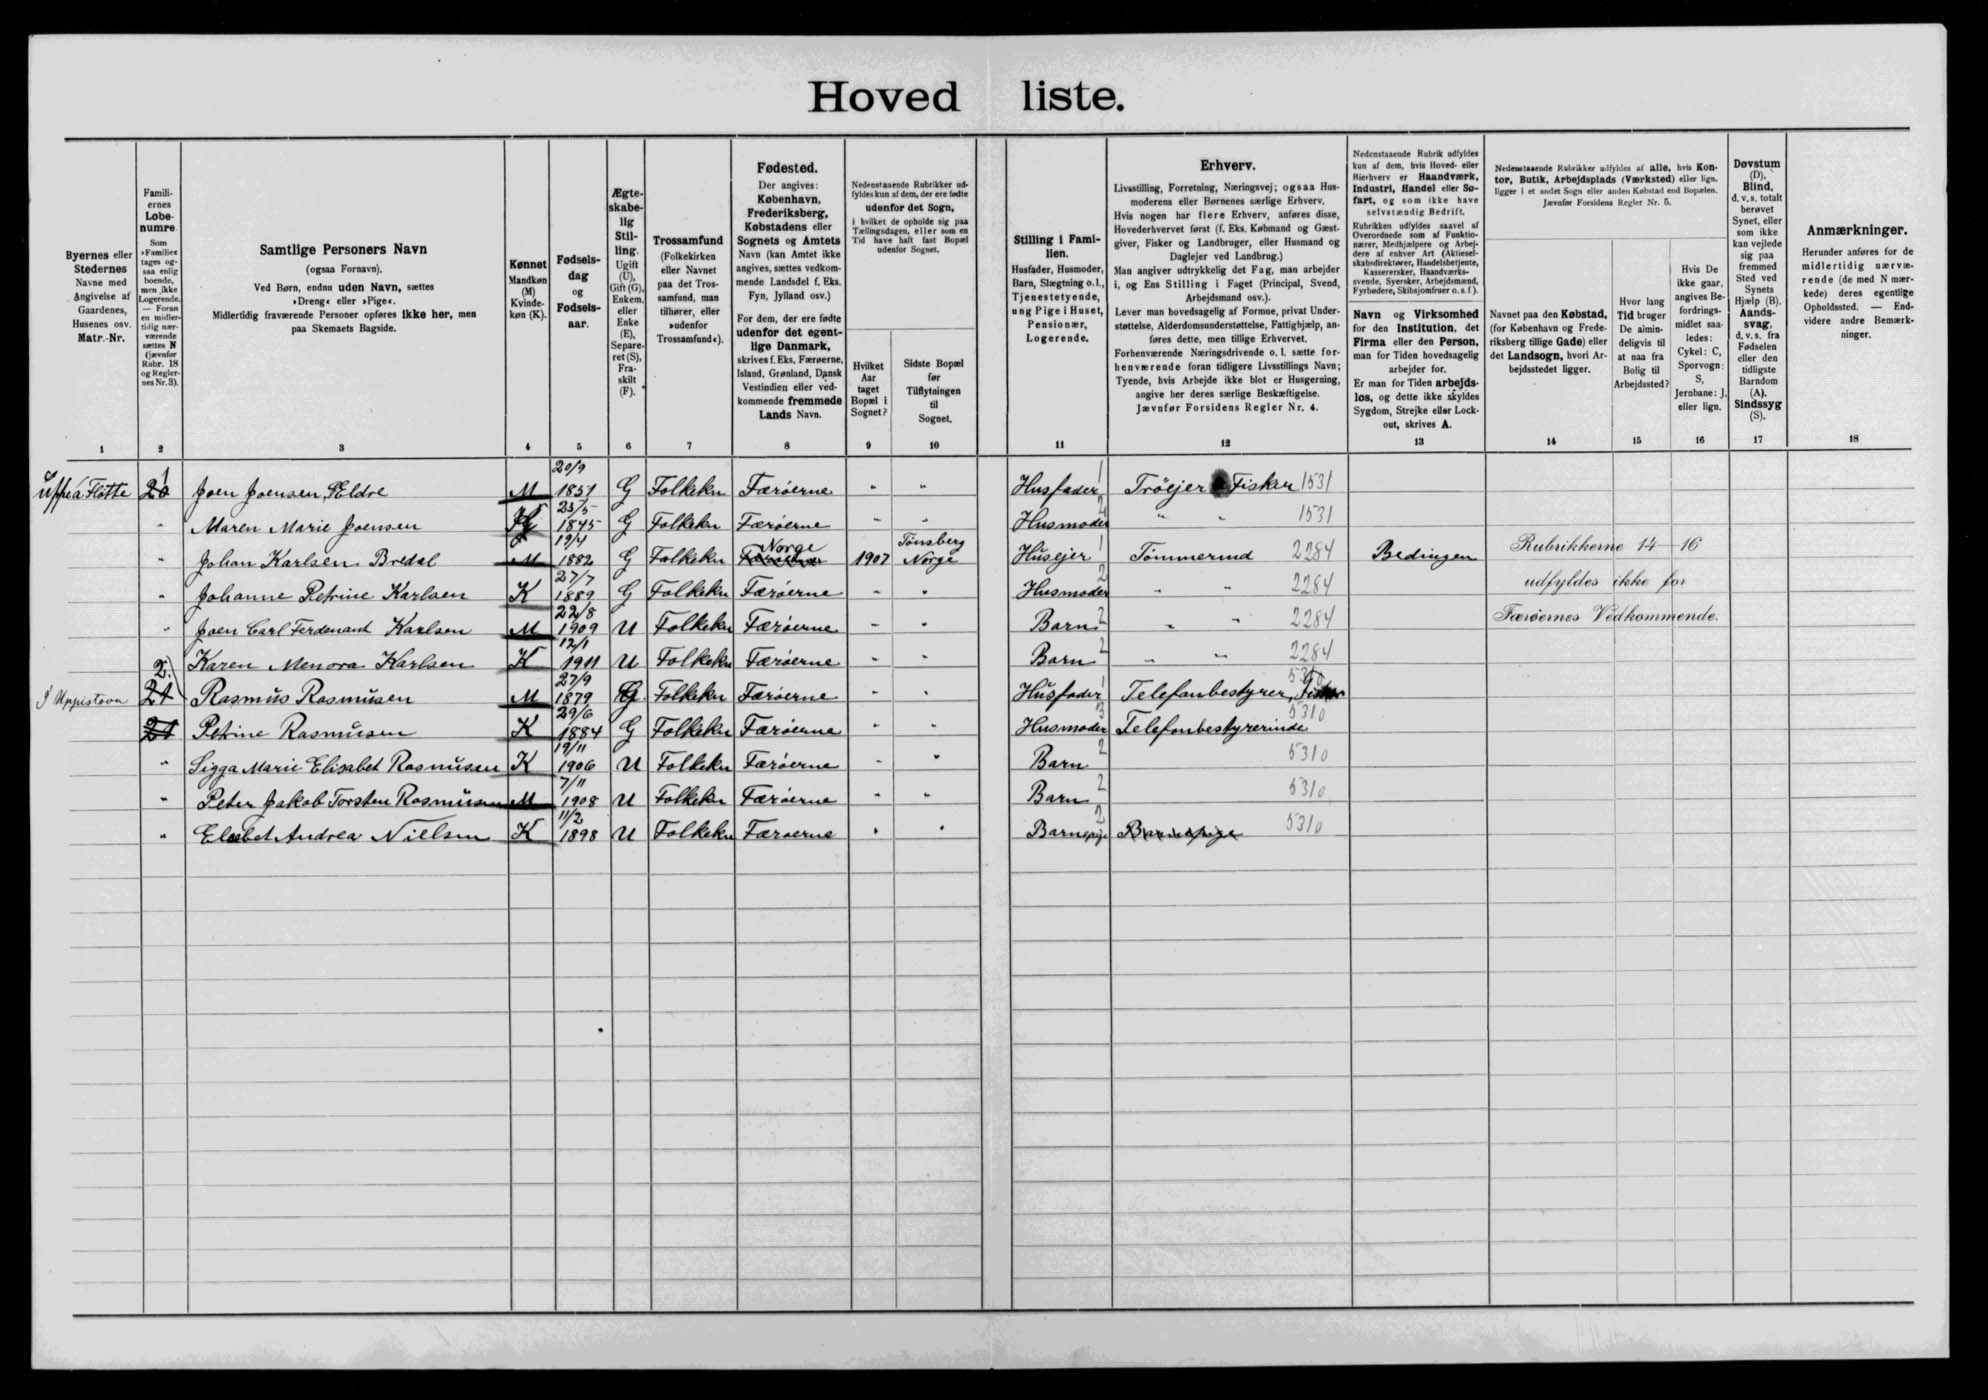 Hoved liste.
Byernes eller
Stedernes
Navne med
Angivelse af
Gaardenes,
Husenes osv.
Matr.-Nr.
1
Famili-
ernes
Løbe-
numre.
Som
»Familie«
tages og-
saa enlig
boende,
men ikke
Logerende.
— Foran
en midler-
tidig nær-
værende
sættes N
(jævnfør
Rubr. 18
og Regler-
nes Nr. 3).
2
Samtlige Personers Navn
(ogsaa Fornavn).
Ved Børn, endnu uden Navn, sættes
»Dreng« eller »Pige«.
Midlertidig fraværende Personer opføres ikke her, men
paa Skemaets Bagside.
3
Kønnet
Mandkøn
(M)
Kvinde-
køn (K).
4
Fødsels-
dag
og
Fødsels-
aar.
5
Ægte-
skabe-
lig
Stil-
ling.
Ugift
(U),
Gift (G),
Enkem.
eller
Enke
(E),
Separe-
ret (S),
Fra-
skilt
(F).
6
Trossamfund
(Folkekirken
eller Navnet
paa det Tros-
samfund, man
tilhører, eller
»udenfor
Trossamfund«).
7
Fødested.
Der angives:
København,
Frederiksberg,
Købstadens eller
Sognets og Amtets
Navn (kan Amtet ikke
angives, sættes vedkom-
mende Landsdel f. Eks.
Fyn, Jylland osv.)
For dem, der ere fødte
udenfor det egent-
lige Danmark,
skrives f. Eks. Færøerne,
Island, Grønland, Dansk
Vestindien eller ved-
kommende fremmede
Lands Navn.
8
Nedenstaaende Rubrikker ud-
fyldes kun af dem, der ere fødte
udenfor det Sogn,
i hvilket de opholde sig paa
Tællingsdagen, eller som en
Tid have haft fast Bopæl
udenfor Sognet.
Hvilket
Aar
taget
Bopæl i
Sognet?
9
Sidste Bopæl
før
Tilflytningen
til
Sognet.
10
Stilling i Fami-
lien.
Husfader, Husmoder,
Barn, Slægtning o. l.,
Tjenestetyende,
ung Pige i Huset,
Pensionær,
Logerende.
11
Erhverv.
Livsstilling, Forretning, Næringsvej; ogsaa Hus-
moderens eller Børnenes særlige Erhverv.
Hvis nogen har flere Erhverv, anføres disse,
Hovederhvervet først (f. Eks. Købmand og Gæst-
giver, Fisker og Landbruger, eller Husmand og
Daglejer ved Landbrug.)
Man angiver udtrykkelig det Fag, man arbejder
i, og Ens Stilling i Faget (Principal, Svend,
Arbejdsmand osv.).
Lever man hovedsagelig af Formue, privat Under-
støttelse, Alderdomsunderstøttelse, Fattighjælp, an-
føres dette, men tillige Erhvervet.
Forhenværende Næringsdrivende o. l. sætte for-
henværende foran tidligere Livsstillings Navn;
Tyende, hvis Arbejde ikke blot er Husgerning,
angive her deres særlige Beskæftigelse.
Jævnfør Forsidens Regler Nr. 4.
12
Nedenstaaende Rubrik udfyldes
kun af dem, hvis Hoved- eller
Bierhverv er Haandværk,
Industri, Handel eller Sø-
fart, og som ikke have
selvstændig Bedrift.
Rubrikken udfyldes saavel af
Overordnede som af Funktio-
nærer, Medhjælpere og Arbej-
dere af enhver Art (Aktiesel-
skabsdirektører, Handelsbetjente,
Kassererske, Haandværks-
svende, Syersker, Arbejdsmænd,
Fyrbødere, Skibsjomfruer o. s. f.).
Navn og Virksomhed
for den Institution, det
Firma eller den Person,
man for Tiden hovedsagelig
arbejder for.
Er man for Tiden arbejds-
løs, og dette ikke skyldes
Sygdom, Strejke eller Lock-
out, skrives A.
13
Nedenstaaende Rubrikker udfyldes af alle, hvis Kon-
tor, Butik, Arbejdsplads (Værksted) eller lign.
ligger i et andet Sogn eller anden Købstad end Bopælen.
Jævnfør Forsidens Regler Nr. 5.
Navnet paa den Købstad,
(for København og Frede-
riksberg tillige Gade) eller
det Landsogn, hvori Ar-
bejdsstedet ligger.
14
Hvor lang
Tid bruger
De almin-
deligvis til
at naa fra
Bolig til
Arbejdssted?
15
Hvis De
ikke gaar,
angives Be-
fordrings-
midlet saa-
ledes:
Cykel: C,
Sporvogn:
S,
Jernbane: J,
eller lign.
16
Døvstum
(D),
Blind,
d. v. s. totalt
berøvet
Synet, eller
som ikke
kan vejlede
sig paa
fremmed
Sted ved
Synets
Hjælp (B),
Aands-
svag,
d. v. s. fra
Fødselen
eller den
tidligste
Barndom
(A),
Sindssyg
(S).
17
Anmærkninger.
Herunder anføres for de
midlertidig nærvæ-
rende (de med N mær-
kede) deres egentlige
Opholdssted. — End-
videre andre Bemærk-
ninger.
18
Uppi á Fløtte 20 1 Joen Joensen, Eldre M 20/9 1851 G Folkekn Færøerne " " Husfader 1 Trøejer Fisker 1531
" Maren Marie Joensen K 25/5 1845 G Folkekn Færøerne " " Husmoder 2 " " 1531
" Johan Karlsen Bredal M 19/4 1882 G Folkekn Norge 1907 Tönsberg Norge Husejer 1 Tömmermd 2284 Bedingen Rubrikkerne 14-16
" Johanne Petrine Karlsen K 27/7 1889 G Folkekn Færøerne " " Husmoder 2 " " 2284 udfyldes ikke for
" Joen Carl Ferdenant Karlsen M 22/8 1909 U Folkekn Færøerne " " Barn 2 " " 2284 Færøernes Vedkommende.
Karen Menora Karlsen K 12/1 1911 U Folkekn Færøerne " " Barn 2 " " 2284
I Uppistovu 21 2. Rasmus Rasmussen M 27/9 1879 G Folkekn Færøerne " " Husfader 1 Telefonbestyrer, Fisker 5310
21 Petrine Rasmussen K 29/6 1884 G Folkekn Færøerne " " Husmoder 3 Telefonbestyrerinde 5310
" Sigga Marie Elisabet Rasmussen K 19/11 1906 U Folkekn Færøerne " " Barn 2 5310
" Peter Jakob Torsten Rasmussen M 7/11 1908 U Folkekn Færøerne " " Barn 2 5310
" Elsebet Andrea Nielsen K 11/2 1898 U Folkekn Færøerne " " Barnepige 2 Barnepige 5310